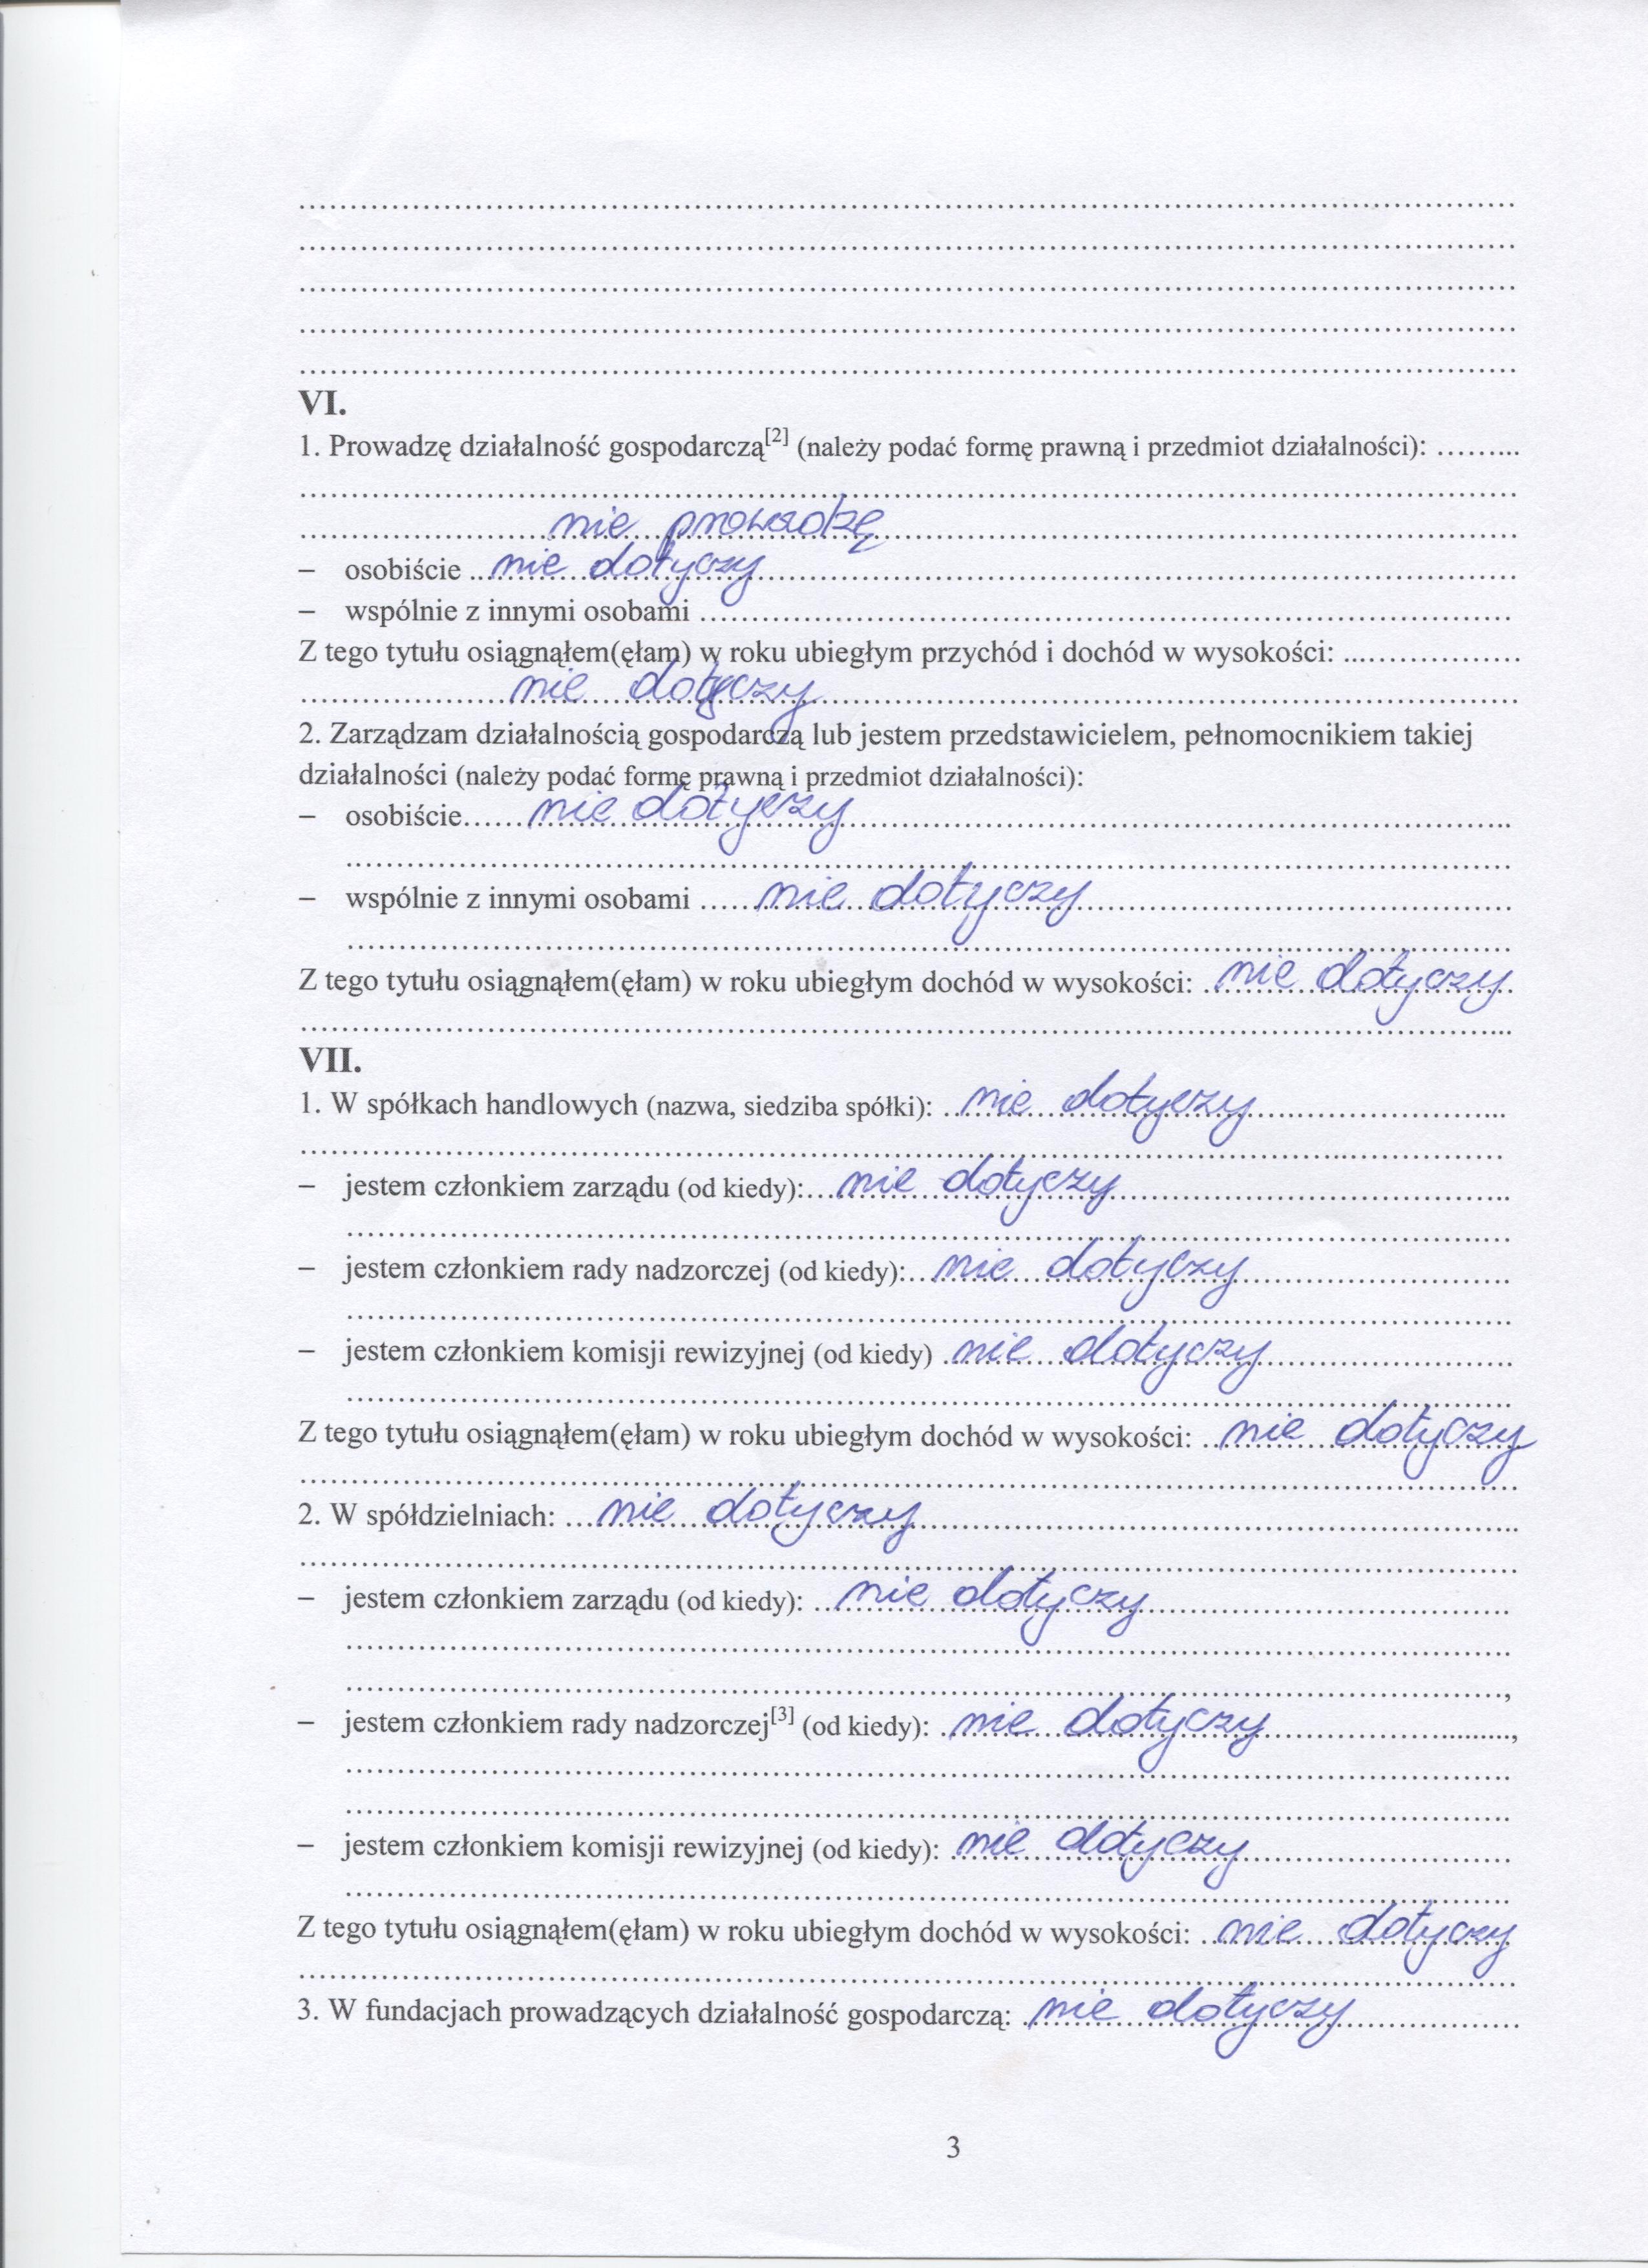 VI.
1. Prowadzę działalność gospodarczą[2] (należy podać formę prawną i przedmiot działalności): .........
nie prowadzę
– osobiście nie dotyczy
– wspólnie z innymi osobami
Z tego tytułu osiągnąłem(ęłam) w roku ubiegłym przychód i dochód w wysokości:
nie dotyczy
2. Zarządzam działalnością gospodarczą lub jestem przedstawicielem, pełnomocnikiem takiej
działalności (należy podać formę prawną i przedmiot działalności):
– osobiście nie dotyczy
– wspólnie z innymi osobami nie dotyczy
Z tego tytułu osiągnąłem(ęłam) w roku ubiegłym dochód w wysokości: nie dotyczy
VII.
1. W spółkach handlowych (nazwa, siedziba spółki): nie dotyczy
– jestem członkiem zarządu (od kiedy): nie dotyczy
– jestem członkiem rady nadzorczej (od kiedy): nie dotyczy
– jestem członkiem komisji rewizyjnej (od kiedy) nie dotyczy
Z tego tytułu osiągnąłem(ęłam) w roku ubiegłym dochód w wysokości: nie dotyczy
2. W spółdzielniach: nie dotyczy
– jestem członkiem zarządu (od kiedy): nie dotyczy
– jestem członkiem rady nadzorczej[3] (od kiedy): nie dotyczy
– jestem członkiem komisji rewizyjnej (od kiedy): nie dotyczy
Z tego tytułu osiągnąłem(ęłam) w roku ubiegłym dochód w wysokości: nie dotyczy
3. W fundacjach prowadzących działalność gospodarczą: nie dotyczy
3